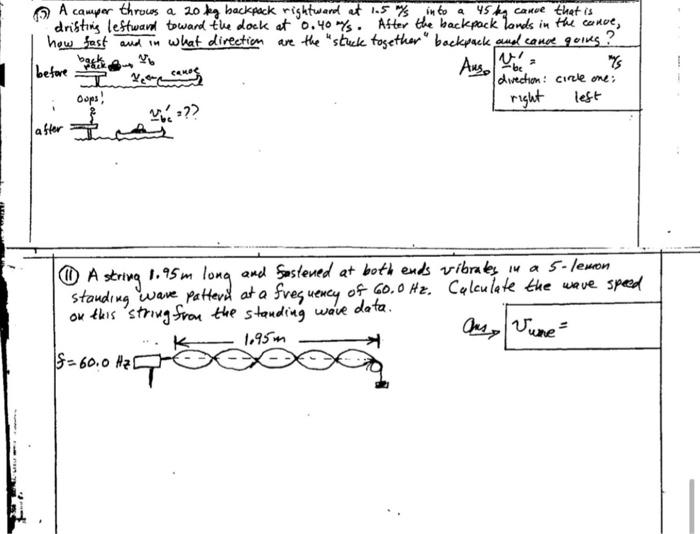 A camper throws a 20 kg backpack rightward at 1.5 m/s into a 45 kg canoe that is
drifting leftward toward the dock at 0.40 m/s. After the backpack lands in the canoe,
how fast and in what direction are the "stuck together" backpack and canoe going?
before
back
pack
v_b
v_c
canoe
Ans.
v'_bc = m/s
direction: circle one:
right left
Oops!
after
v'_bc = ??
(11) A string 1.95 m long and fastened at both ends vibrates in a 5-lemon
standing wave pattern at a frequency of 60.0 Hz. Calculate the wave speed
on this string from the standing wave data.
Ans
v_wave =
1.95 m
f = 60.0 Hz